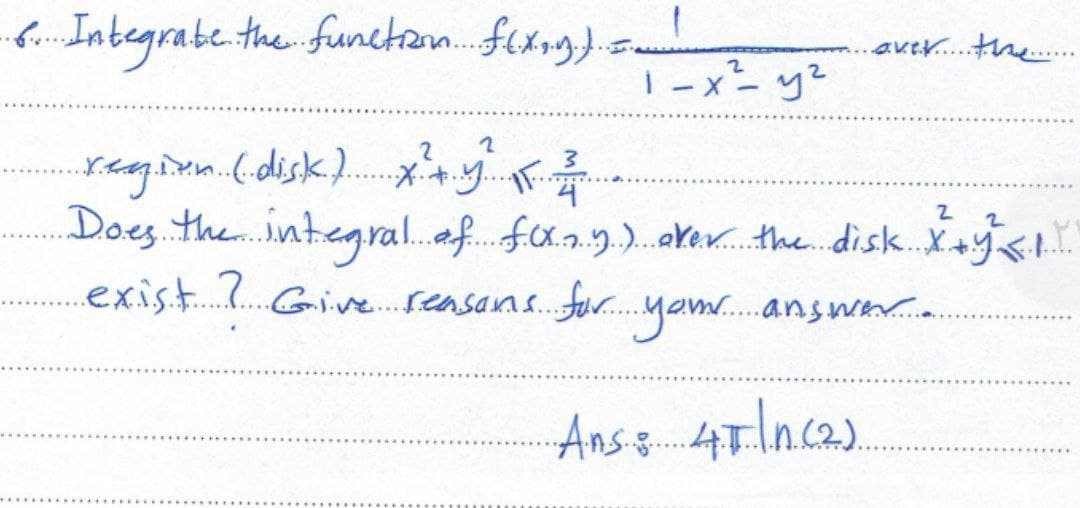 6. Integrate the function f(x,y) = 1 / (1 - x² - y²) over the
region (disk) x² + y² ≤ 3/4 .
Does the integral of f(x,y) over the disk x² + y² ≤ 1
exist? Give reasons for your answer.
Ans: 4π ln(2)